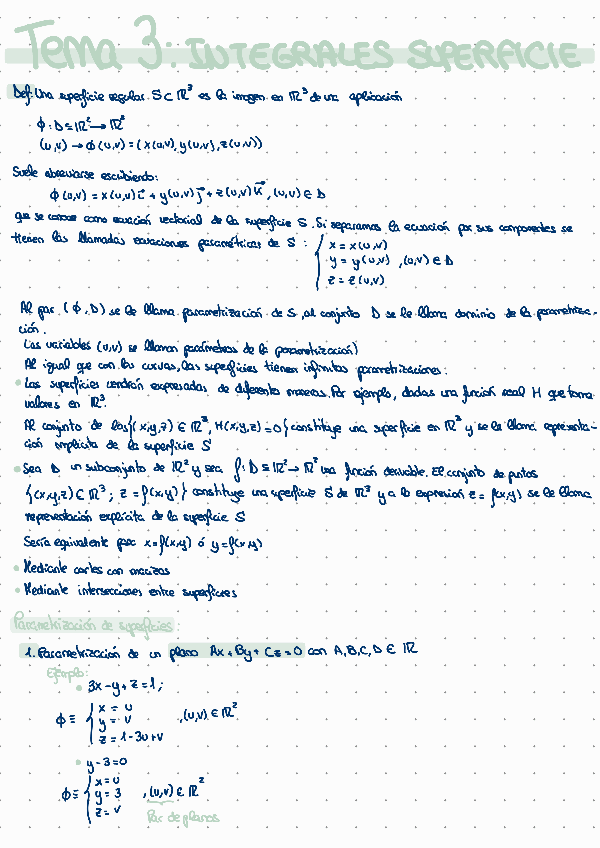 Tema 3: INTEGRALES SUPERFICIE
Def: Una superficie regular S⊂ℝ³ es la imagen en ℝ³ de una aplicación
ϕ: D⊆ℝ²→ℝ²
(u,v) → ϕ(u,v)=(x(u,v),y(u,v),z(u,v))
Suele abreviarse escribiendo:
ϕ(u,v) = x(u,v)i⃗ + y(u,v)j⃗ + z(u,v)k⃗, (u,v) ∈ D
que se conoce como ecuación vectorial de la superficie S. Si separamos la ecuación por sus componentes se
tienen las llamadas ecuaciones paramétricas de S : { x = x(u,v)
y = y(u,v) ,(u,v) ∈ D
z = z(u,v)
Al par (ϕ,D) se le llama parametrización de S, al conjunto D se le llama dominio de la parametriza-
ción.
Las variables (u,v) se llaman parámetros de la parametrización)
Al igual que con las curvas, las superficies tienen infinitas parametrizaciones.
• Las superficies vendrán expresadas de diferente maneras. Por ejemplo, dadas una función real H que toma
valores en ℝ³.
Al conjunto de los {(x,y,z) ∈ ℝ³, H(x,y,z)=0} constituye una superficie en ℝ³ y se le llama representa-
ción implícita de la superficie S
• Sea D un subconjunto de ℝ² y sea f: D⊆ℝ²→ℝ² una función derivable. El conjunto de puntos
{(x,y,z) ⊂ ℝ³; z = f(x,y)} constituye una superficie S de ℝ³ y a la expresión z = f(x,y) se le llama
representación explícita de la superficie S
Sería equivalente para x=f(x,y) ó y=f(x,y)
• Mediante cortes con macizas
• Mediante intersecciones entre superficies
Parametrización de superficies:
1. Parametrización de un plano Ax+By+Cz=0 con A,B,C,D ∈ ℝ
Ejemplo:
• 3x-y+z=1;
ϕ≡ { x = u
y = v ,(u,v) ∈ ℝ²
z = 1-3u+v
• y-3=0
ϕ≡ { x=u
y=3 ,(u,v) ∈ ℝ²
z=v Par de planos